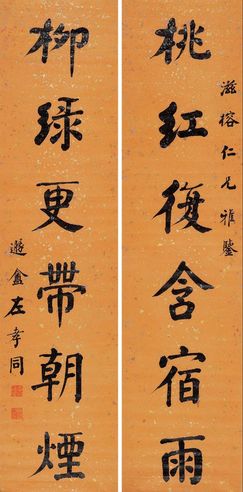 滋榕仁兄雅鑒
桃紅復含宿雨
柳綠更帶朝煙
遯盦左孝同